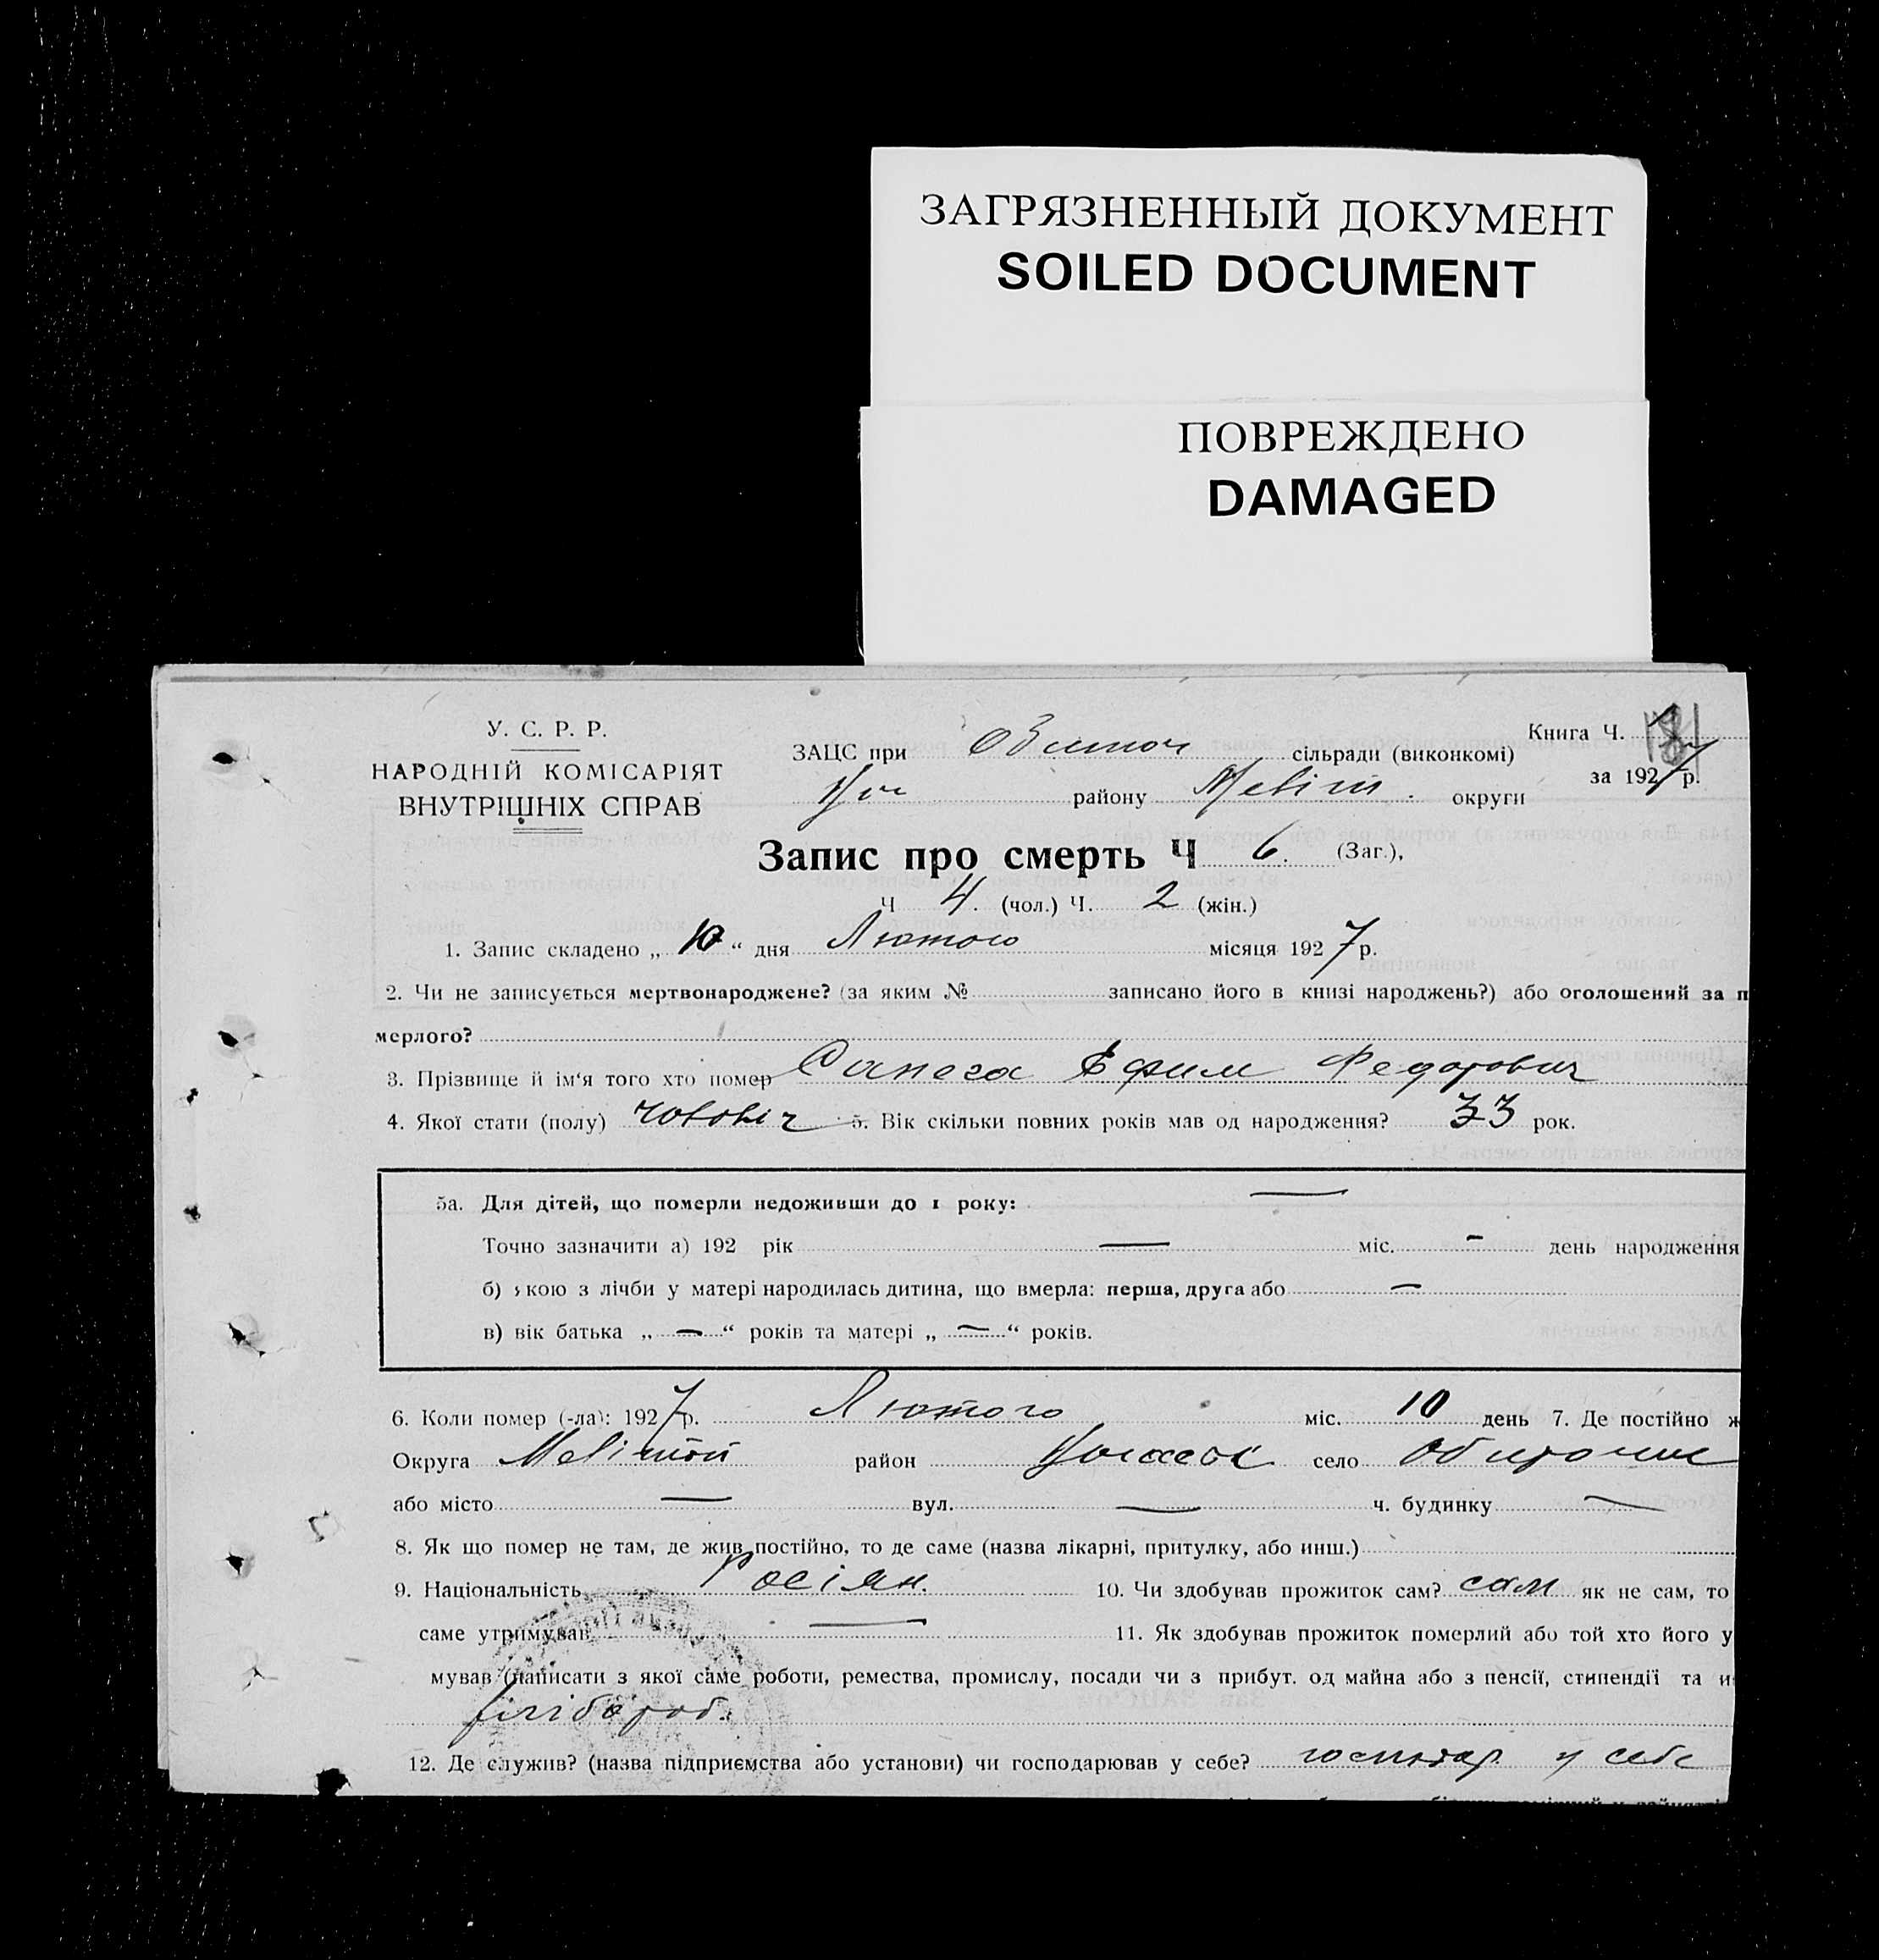 ЗАГРЯЗНЕННЫЙ ДОКУМЕНТ
SOILED DOCUMENT
ПОВРЕЖДЕНО
DAMAGED
У. С. Р. Р.
НАРОДНІЙ КОМІСАРІЯТ
ВНУТРІШНІХ СПРАВ
Книга Ч.
за 1927 р.
ЗАЦС при сільради (виконкомі)
району Меліт. округи
Запис про смерть Ч 6. (Заг.),
Ч 4. (чол.) Ч. 2 (жін.)
1. Запис складено „ 10 “ дня Лютого місяця 1927 р.
2. Чи не записується мертвонароджене? (за яким № записано його в книзі народжень?) або оголошений за п
мерлого?
3. Прізвище й ім‘я того хто помер Сапега Ефим Федорович
4. Якої стати (полу) чоловіч 5. Вік скільки повних років мав од народження? 33 рок.
5а. Для дітей, що померли недоживши до 1 року: —
Точно зазначити а) 192 рік — міс. - день народження
б) якою з лічби у матері народилась дитина, що вмерла: перша, друга або —
в) вік батька „ — “ років та матері „ — “ років.
6. Коли помер (-ла): 1927 р. Лютого міс. 10 день 7. Де постійно ж
Округа район село
або місто — вул. — ч. будинку —
8. Як що помер не там, де жив постійно, то де саме (назва лікарні, притулку, або инш.)
9. Національність Росіян. 10. Чи здобував прожиток сам? сам як не сам, то
саме утримував — 11. Як здобував прожиток померлий або той хто його у
мував (написати з якої саме роботи, ремества, промислу, посади чи з прибут. од майна або з пенсії, стипендії та и
хлібороб.
12. Де служив? (назва підприємства або установи) чи господарював у себе? господар у себе